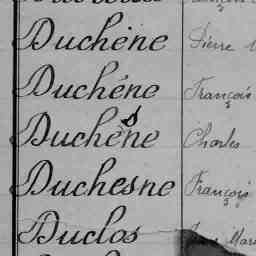 Duchène Pierre
Duchéne François
Duchèsne Charles
Duchesne François
Duclos